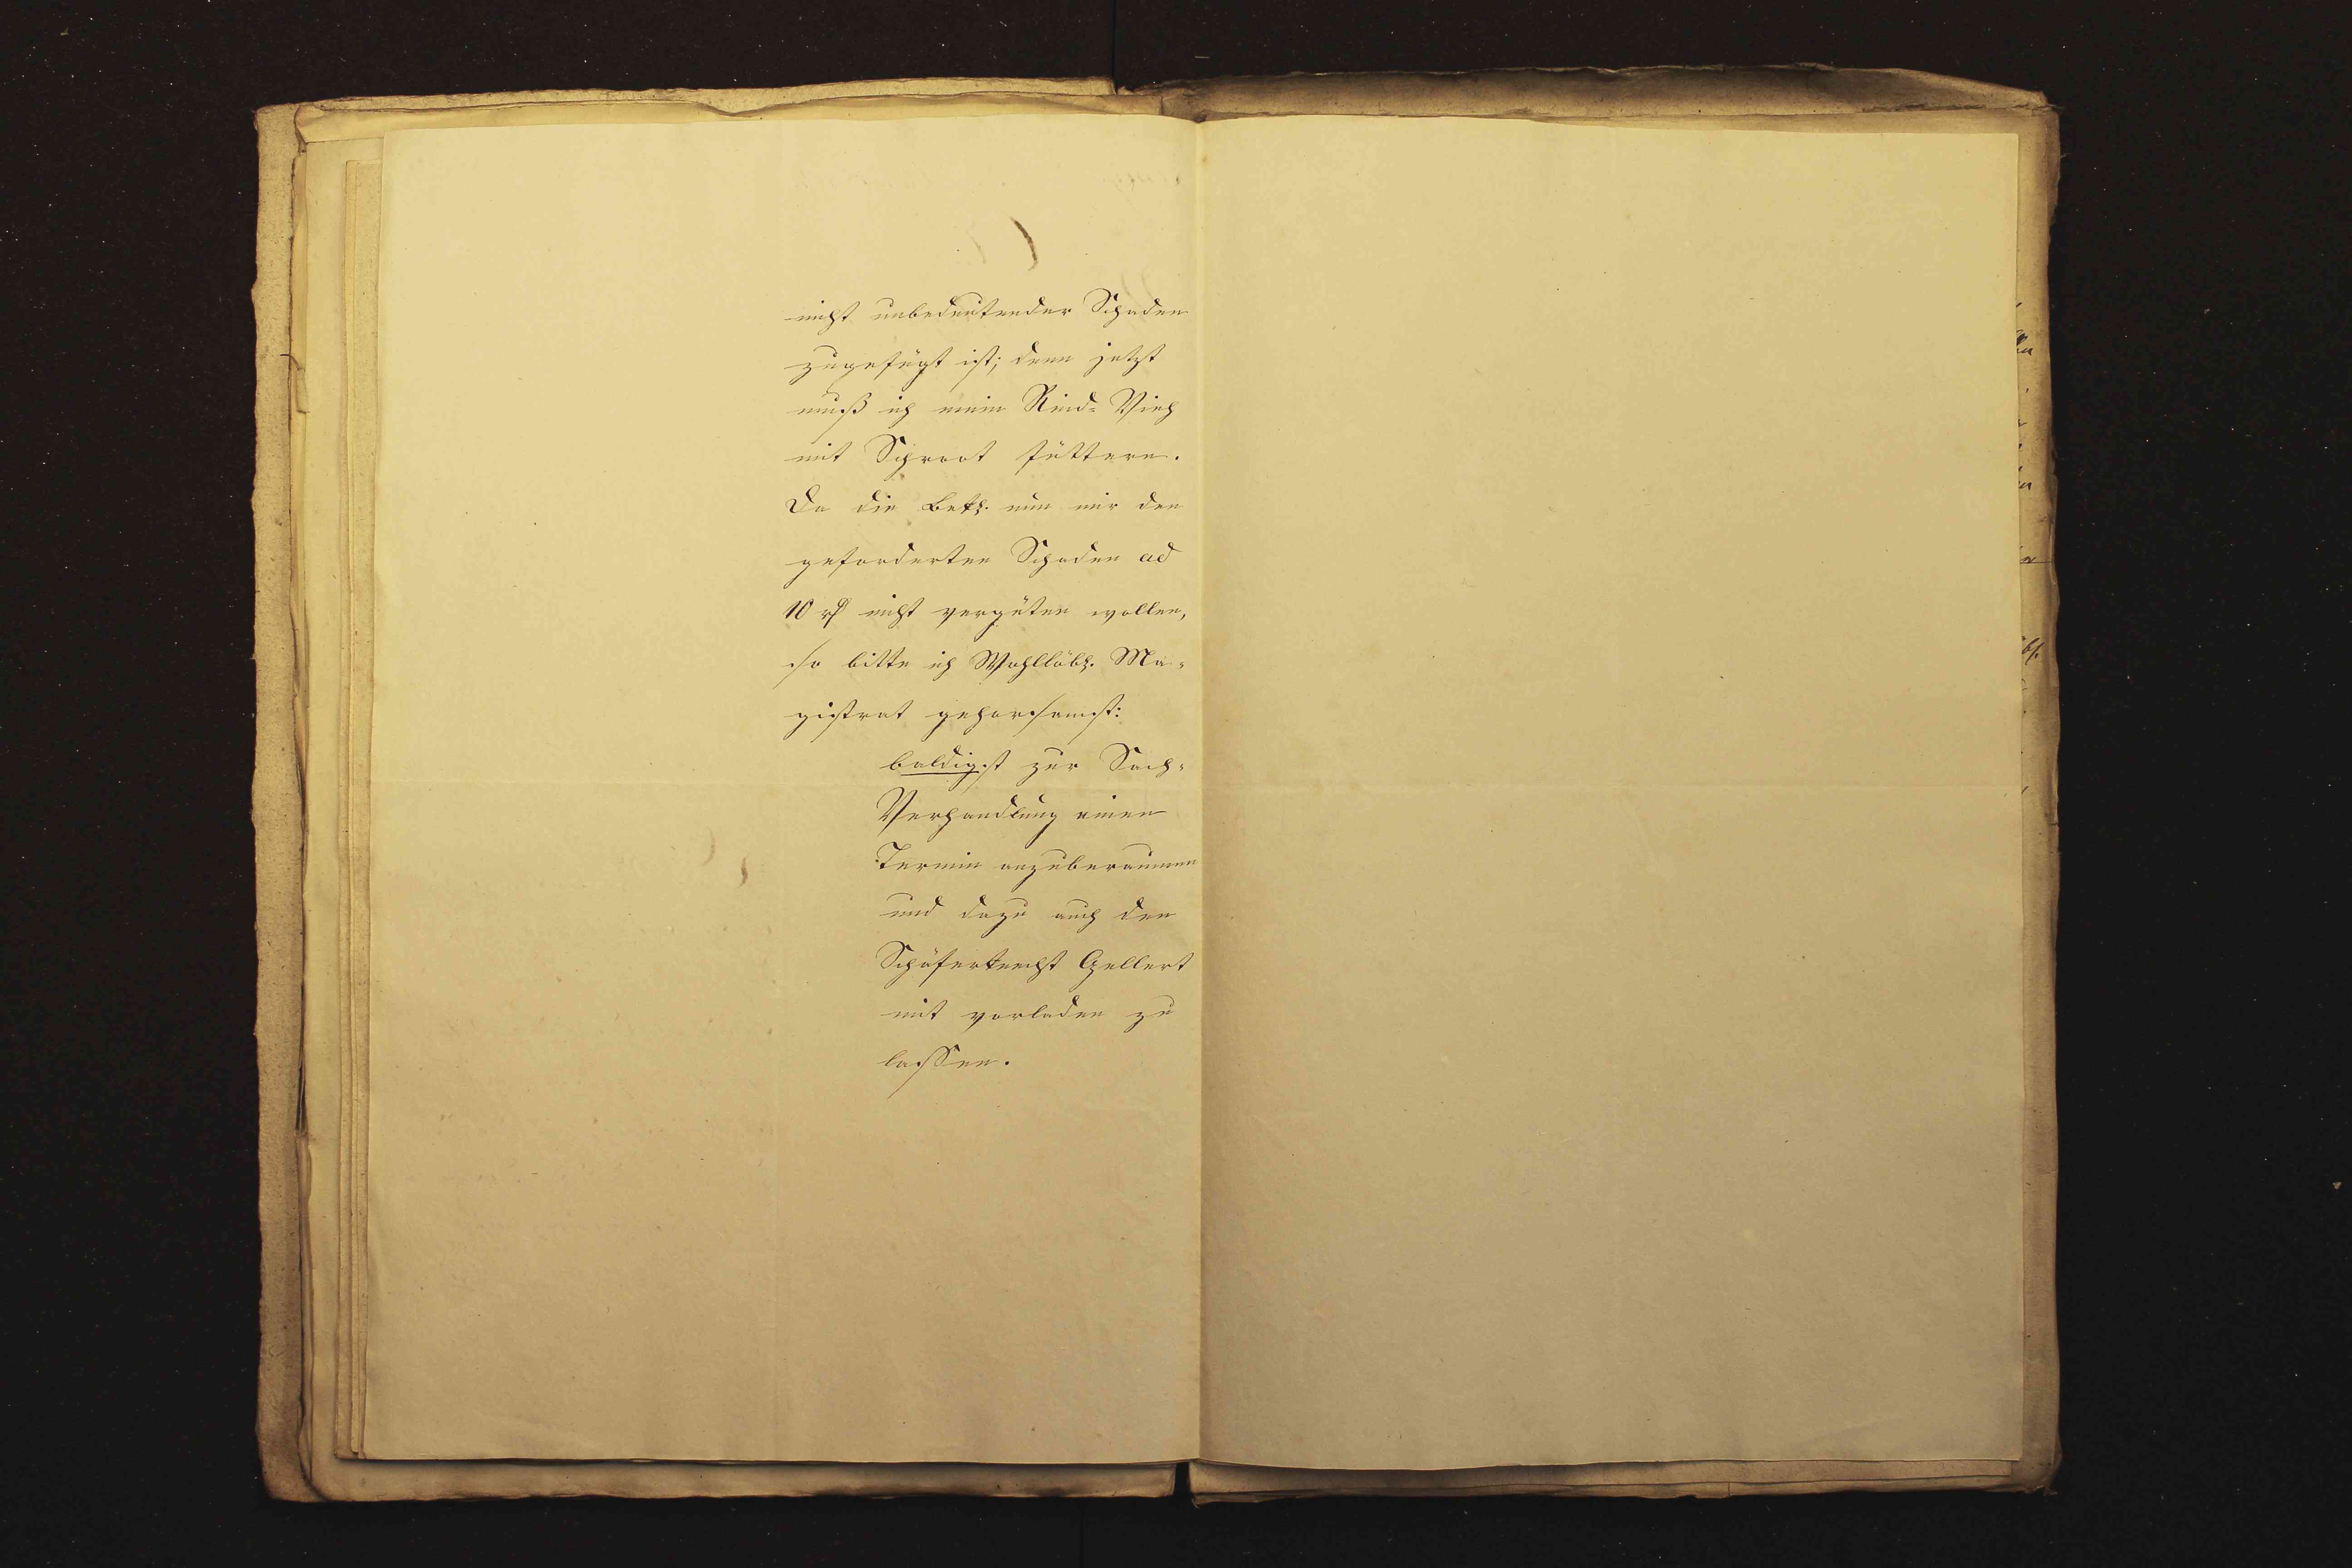 nicht unbedeutender Schaden
zugefügt ist; denn jetzt
muß ich mein Rind-Vieh
mit Schroot füttern.
Da die Bekl. nun mir den
geforderten Schaden ad
10 rℓ nicht vergüten wollen,
so bitte ich Wohllöbl. Ma-
gistrat gehorsamst:
baldigst zur Sach-
Verhandlung einen
Termin anzuberaumen
und dazu auch den
Schäferknecht Gellert
mit vorladen zu
lassen.